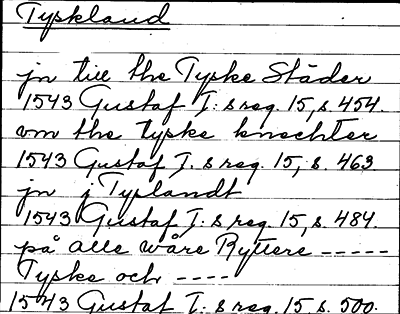 Tyskland
jn till the Tyske Städer
1543 Gustaf I: s reg. 15, s. 454.
vm the tyske knechter
1543 Gustaf I. s reg. 15, s. 463
jn j Typlandt
1543 Gustaf I: s reg. 15, s. 484.
på alle wåre Ryttere -----
Tyske och ----
1543 Gustaf I: s reg. 15 s. 500.